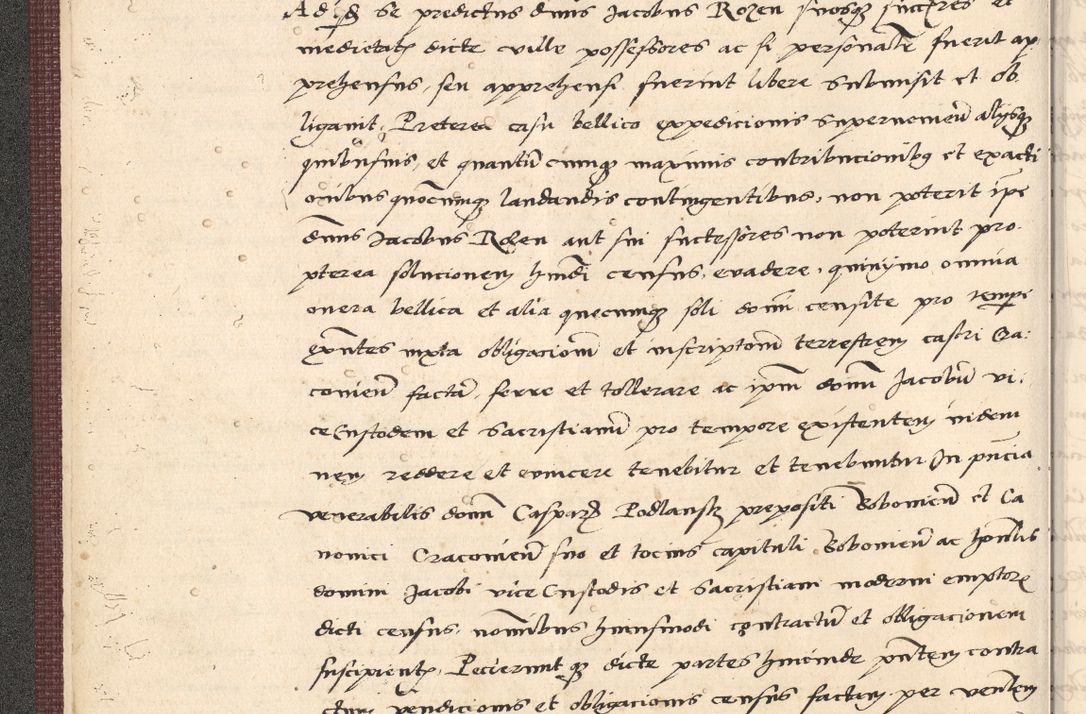 Ad qd se predictus dnus Jacobus Rozen suosq succres et
medietatis dicte ville possessores ac si personalr fuerit ap
prehensus, seu apprehensi fuerint libere submisit et ob
ligauit, Preterea casu bellico expedicionis supervenien alijsq
quibusuis, et quantucumq maximis contribucionibq et exacti
onibus quocumq laudandis contingentibus, non poterit ipe
dnus Jacobus Rozen aut sui successores non poterint pro
pterea solucionem hmdi census, euadere, quinymo omnia
onera bellica et alia quecumq soli domi censite pro tempe
exntes iuxta obligacionem et inscriptionem terrestrem castri Cra
couien factam, ferre et tollerare ac ipm domi Jacobum vi
ceCustodem et Sacristianum pro tempore existentem indem
nem reddere et euincere tenebitur et tenebuntur In pncia
venerabilis domi Casparis Podlansk prepositi Bobouien et Ca
nonici Cracouien suo et tocius capituli Bobouien ac honlis
domini Jacobi vice Custodis et Sacristiani moderni emptoris
dicti census, nomibus huiusmodi contractum et obligacionem
suscipientis, Pecierunt q dicte partes huiusmodi pntem contra
ctum vendicionis et obligacionis census factam per venlem